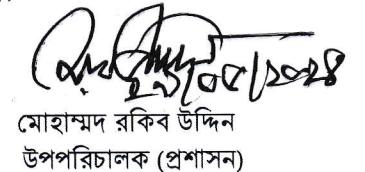 মোহাম্মদ রকিব উদ্দিন
উপপরিচালক (প্রশাসন)